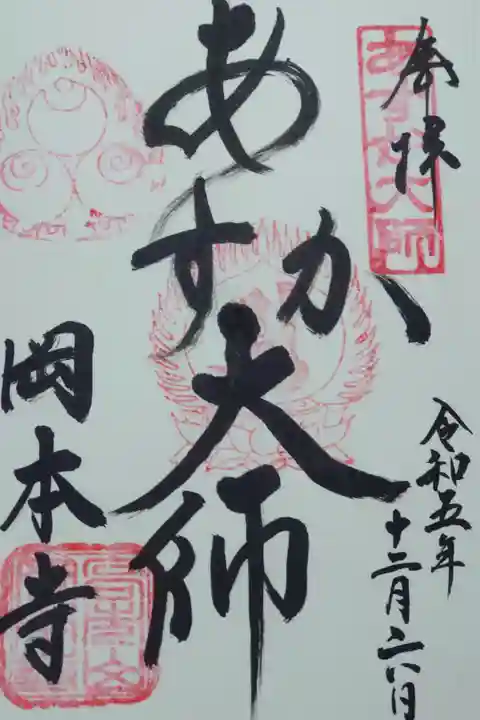 奉拝
あすか大師
あすか大師
令和五年
十二月二六日
岡本寺